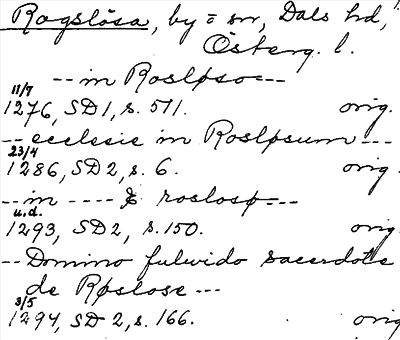 Rogslösa, by = sn, Dals hd,
Österg. l.
-- in Rosløso ---
11/7
1276, SD1, s. 511. orig.
-- ecclesie in Rosløsum ---
23/4
1286, SD2, s. 6. orig.
-- in ---- roslosø ---
u.d.
1293, SD2, s. 150. orig.
-- Domino fulwido sacerdote
de Røslose ---
3/5
1294, SD 2, s. 166. orig